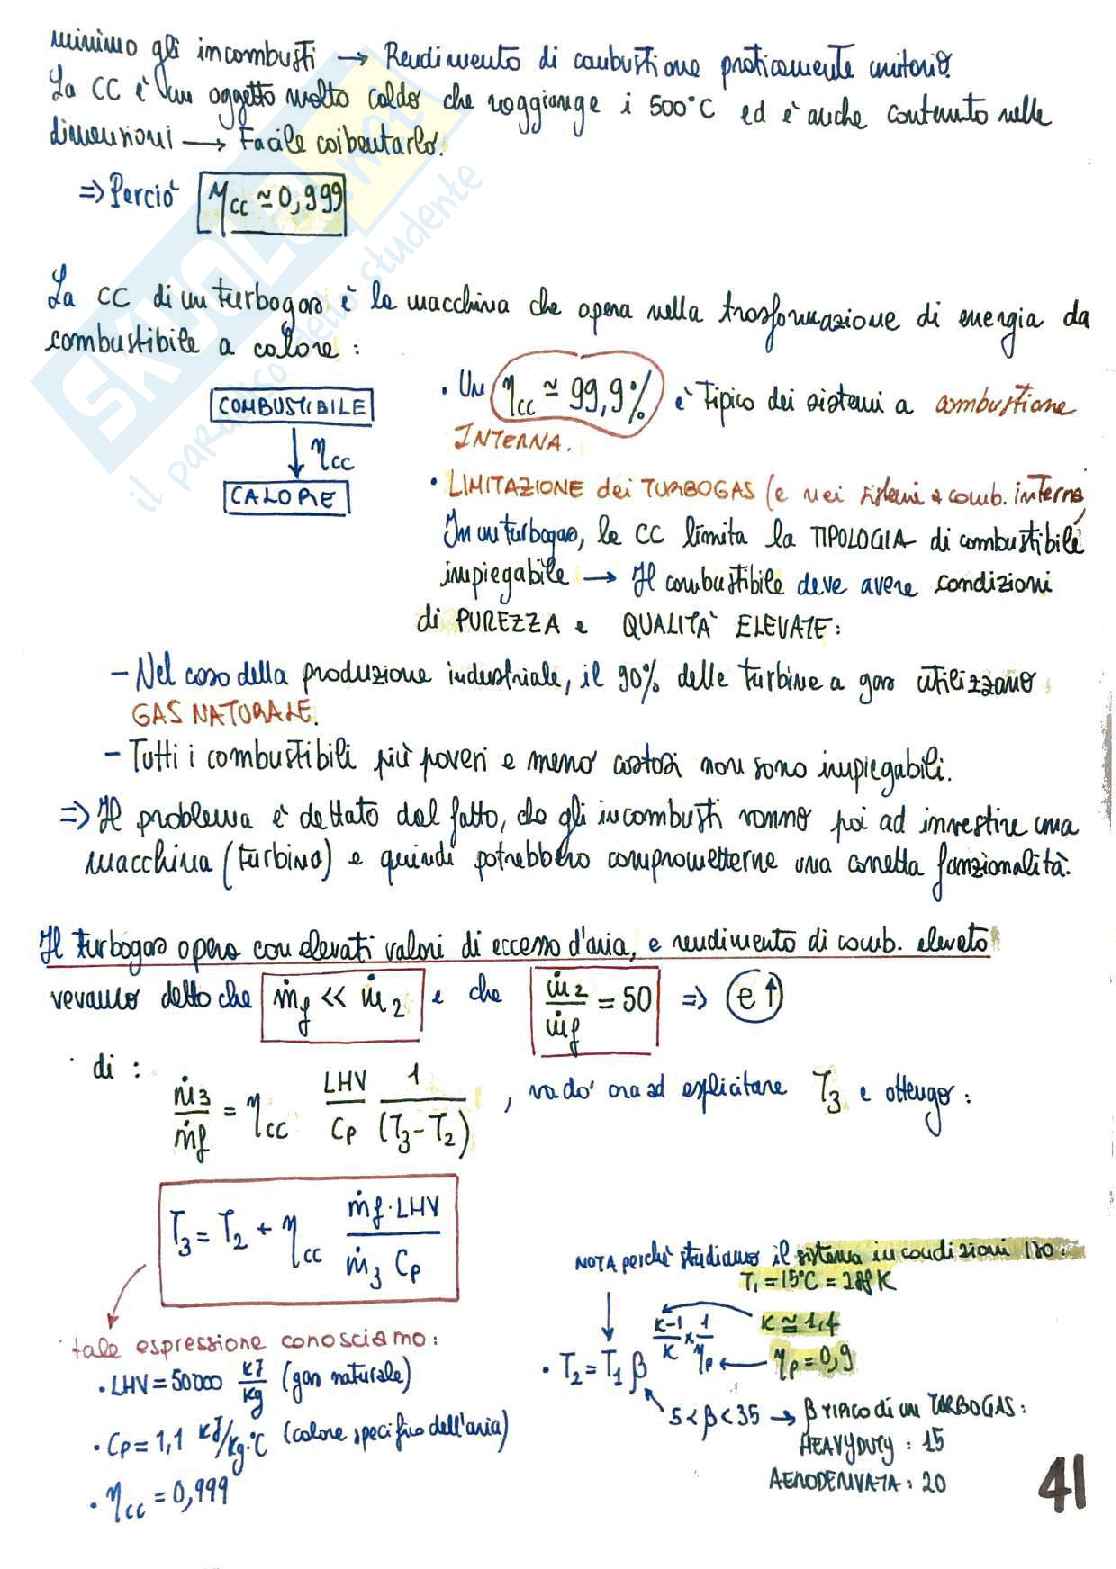 minimo gli incombusti → Rendimento di combustione praticamente unitario.
La CC è un oggetto molto caldo che raggiunge i 500°C ed è anche contenuto nelle
dimensioni → Facile coibentarlo.
⇒ Perciò η_cc ≃ 0,999
La CC di un turbogas è la macchina che opera nella trasformazione di energia da
combustibile a calore:
COMBUSTIBILE
↓ η_cc
CALORE
• Un η_cc ≃ 99,9% è tipico dei sistemi a combustione
INTERNA.
• LIMITAZIONE dei TURBOGAS (e nei sistemi a comb. interna)
In un turbogas, la CC limita la TIPOLOGIA di combustibile
impiegabile → Il combustibile deve avere condizioni
di PUREZZA e QUALITÀ ELEVATE:
- Nel caso della produzione industriale, il 90% delle turbine a gas utilizzano
GAS NATURALE.
- Tutti i combustibili più poveri e meno costosi non sono impiegabili.
⇒ Il problema è dettato dal fatto, che gli incombusti vanno poi ad investire una
macchina (turbina) e quindi potrebbero comprometterne una corretta funzionalità.
Il turbogas opera con elevati valori di eccesso d'aria, e rendimento di comb. elevato
vevamo detto che ṁ_f << ṁ_2 e che ṁ_2/ṁ_f = 50 ⇒ e↑
di :
ṁ_3/ṁ_f = η_cc LHV/Cp 1/(T_3-T_2) , vado ora ad esplicitare T_3 e ottengo:
T_3 = T_2 + η_cc ṁ_f·LHV/ṁ_3 Cp
tale espressione conosciamo:
• LHV = 50000 kJ/kg (gas naturale)
• Cp = 1,1 kJ/kg·°C (calore specifico dell'aria)
• η_cc = 0,999
NOTA perchè studiamo il sistema in condizioni ISO:
T_1 = 15°C = 288 K
• T_2 = T_1 β^(K-1/K × 1/η_p)
K ≃ 1,4
η_p = 0,9
5 < β < 35 → β TIPICO di un TURBOGAS:
HEAVY DUTY : 15
AERODERIVATA : 20
41
SKUOLA.net
il paradiso dello studente